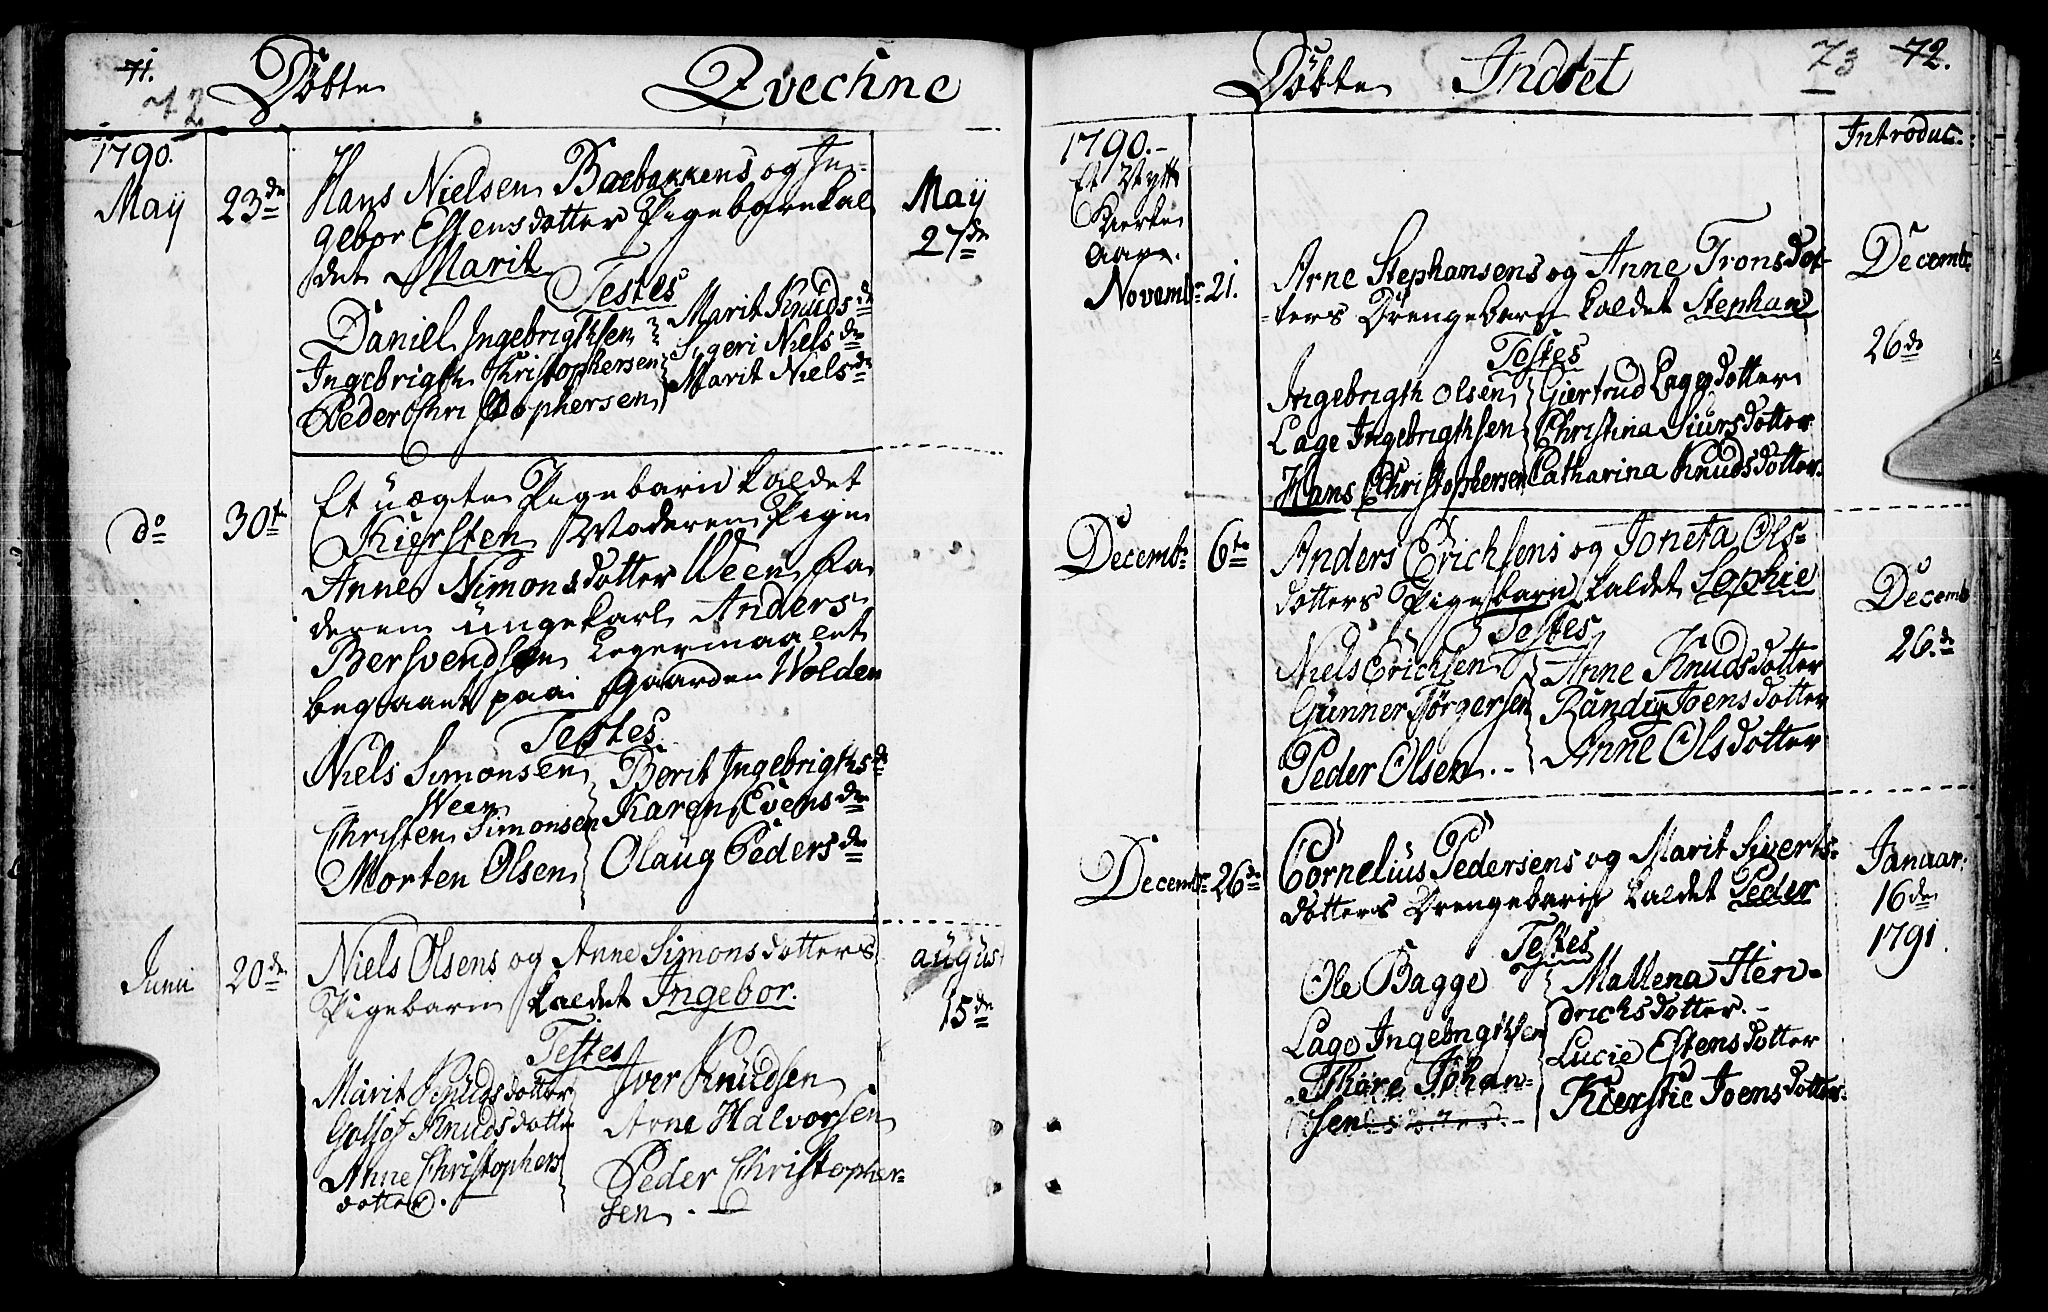 71.
72
Döbte Qvechne
1790.
Maÿ 23de
Hans Nielsen Baebakkens og In-
gebor Estensdotter Pigebarn kal
det Marit
Maÿ
27de
Testes
Daniel Ingebrigthsen
Ingebrigth Christophersen
Peder Christophersen
Marit Knudsdr
Sigeri Nielsdr
Marit Nielsdr
do 30te
Et uægte Pigebarn kaldet
Kiersten Moderen Pigen
Anne Simonsdotter Ween Fa
deren ungekarl Anders
Bersvendsen Legermaalet
begaaet paa Gaarden Wolden
Testes
Niels Simonsen
Ween
Christen Simonsen
Morten Olsen
Berit Ingebrigthsdr
Karen Evensdr
Olaug Pedersdr
Juni 20de
Niels Olsens og Anne Simonsdotters
Pigebarn kaldet Ingebor.
august
15de
Testes
Marit Knudsdotter
Knudsdotter
Anne Christophers
dotter.
Iver Knudsen
Arne Halvorsen
Peder Christopher-
sen.
73 72.
Döbte Indset
Introduc:
1790.
Et Nytt
Kirke
Aar.
Novembr 21.
Arne Stephansens og Anne Tronsdot-
ters Drengebarn kaldet Stephan
Decembr
26de
Testes
Ingebrigth Olsen
Lage Ingebrigthsen
Hans Christophersen
Giertrud Lagesdotter
Christina Siursdotter
Catharina Knudsdotter.
Decembr 6te
Anders Erichsens og Joneta Ols-
dotters Pigebarn kaldet Sophie
Decemb
26.de
Testes
Niels Erichsen
Gunner Jörgersen
Peder Olsen.
Anne Knudsdotter
Randi Joensdotter
Anne Olsdotter
Decembr 26de
Cornelius Pedersens og Marit Siverts-
dotters Drengebarn kaldet Peder
Januar:
16de
1791.
Testes
Ole Bagge
Lage Ingebrigthsen
Thore Johan-
sen
Mallena Hen-
drichsdotter.
Lucie Estensdotter
Kierstie Joensdotter.